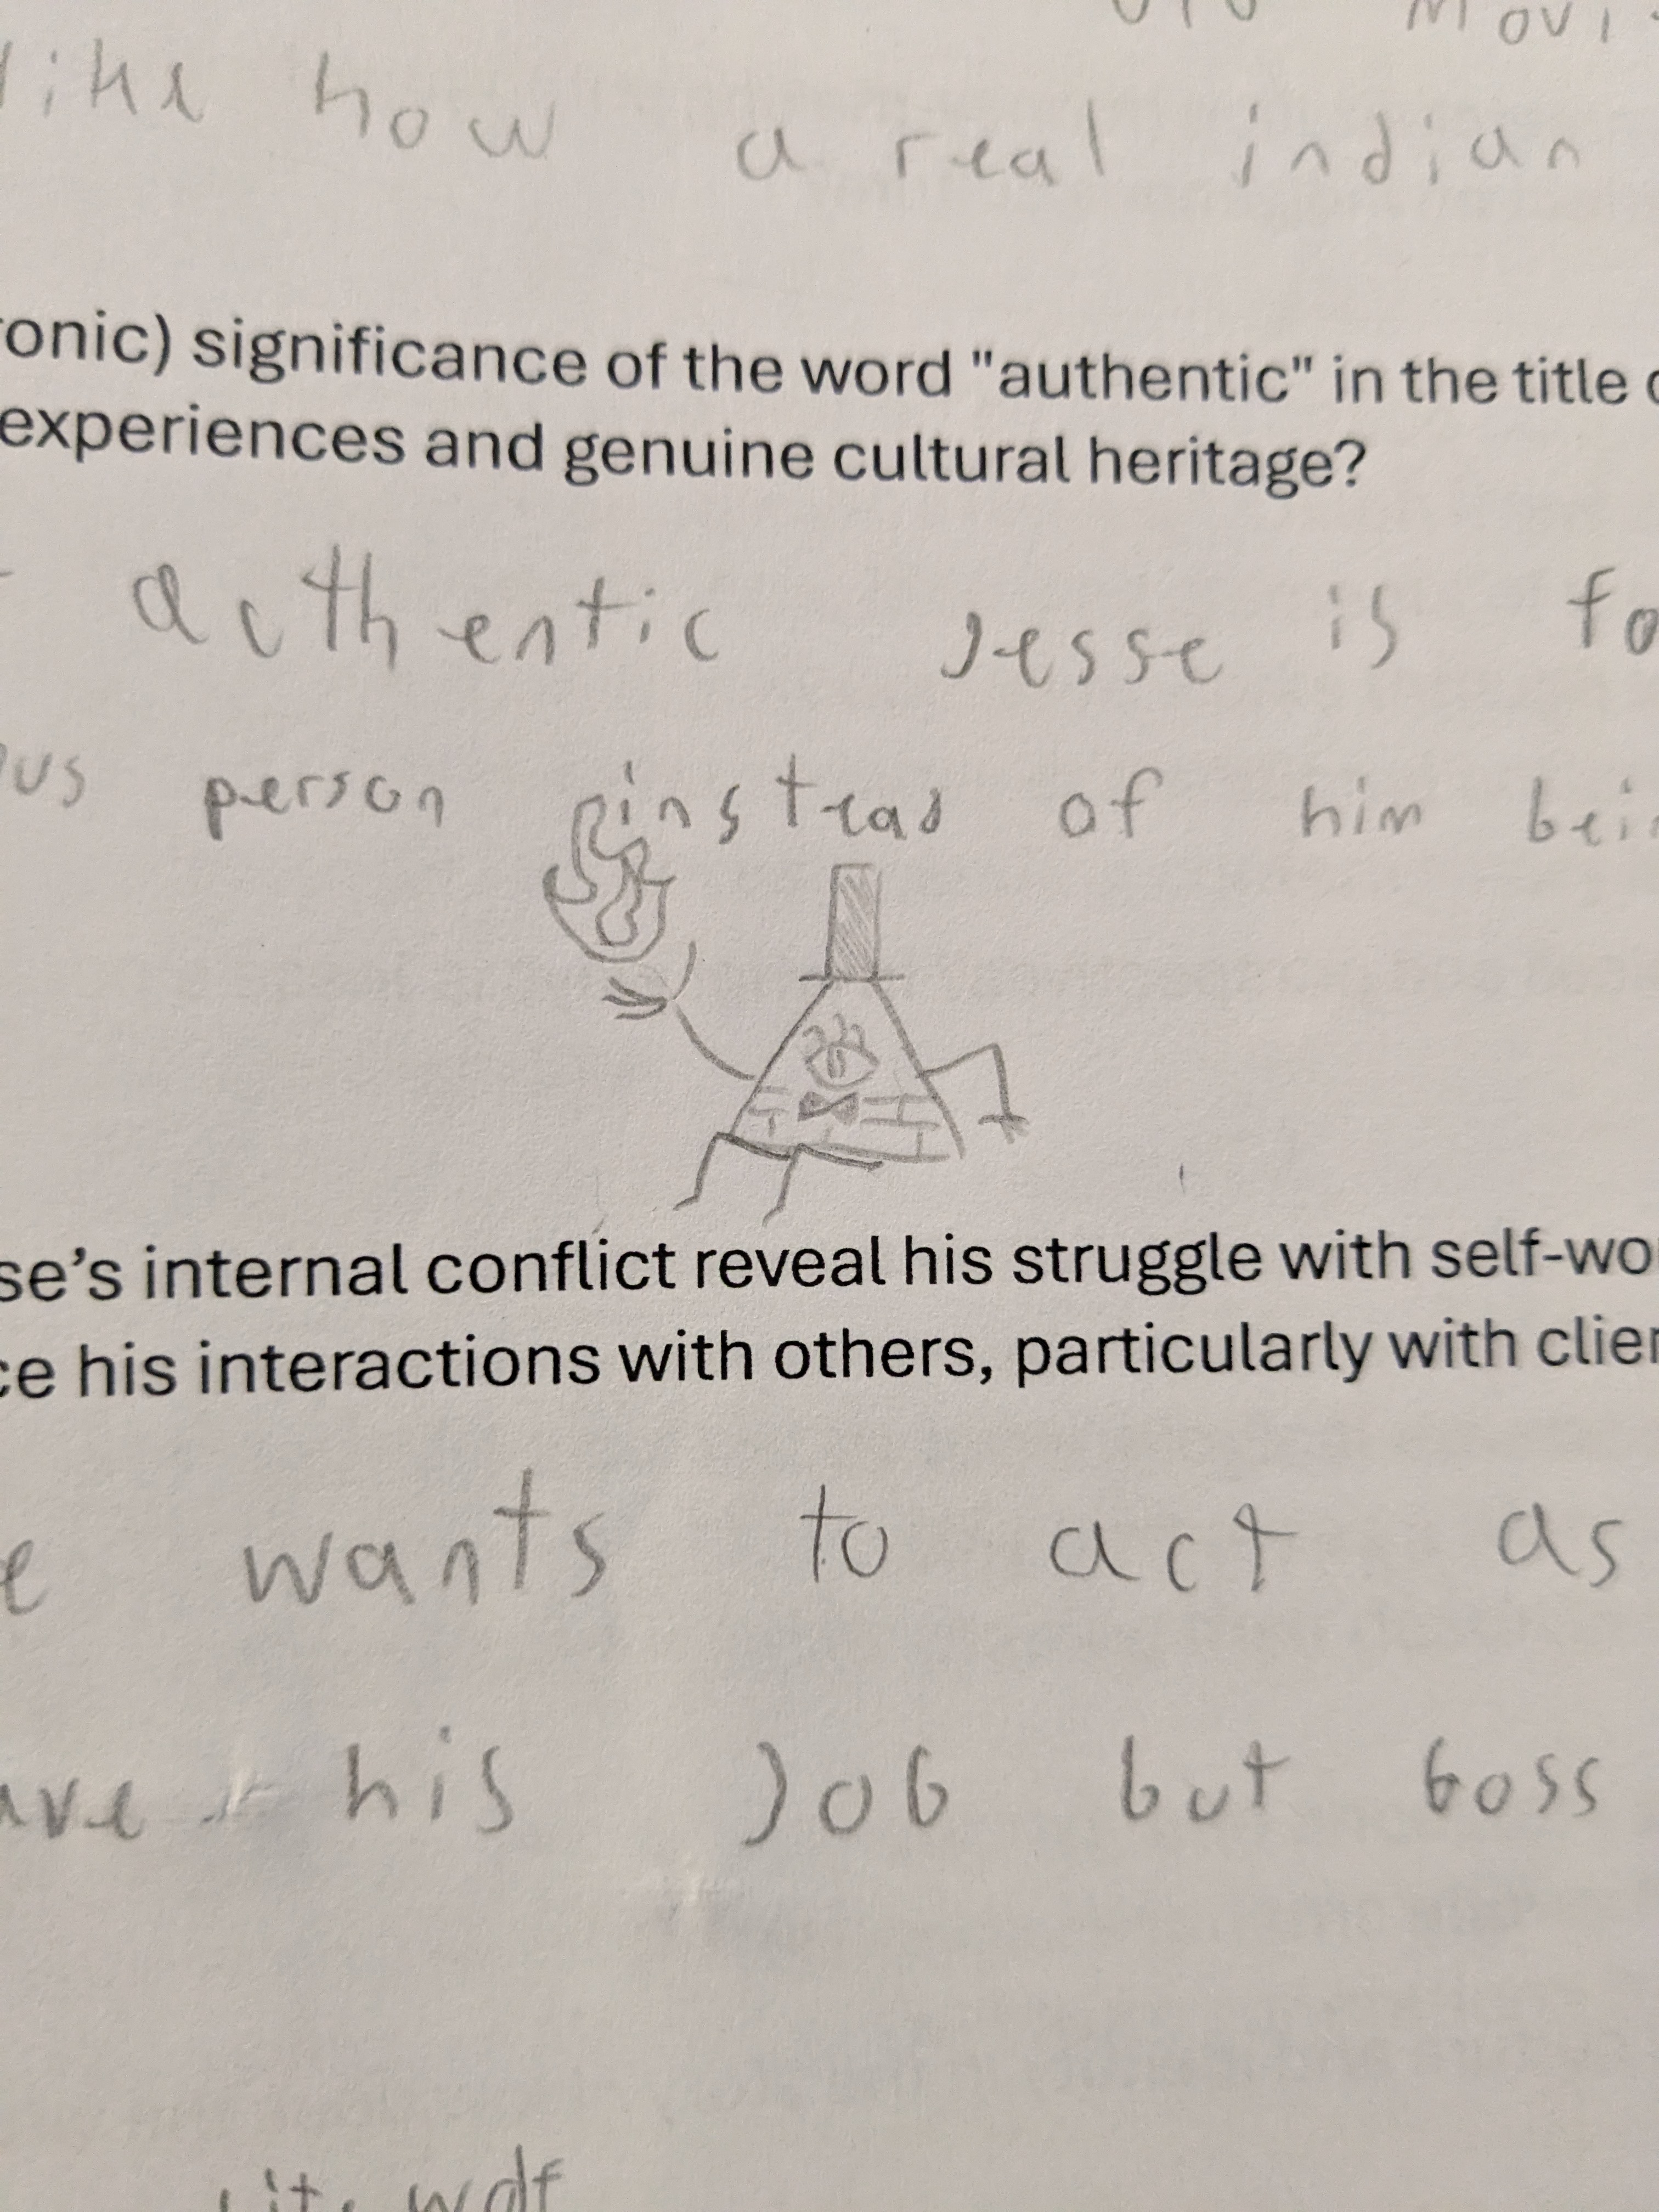 like how a real indian
ronic) significance of the word "authentic" in the title
experiences and genuine cultural heritage?
authentic Jesse is fo
ous person instead of him bei
se's internal conflict reveal his struggle with self-wo
ce his interactions with others, particularly with clien
e wants to act as
ave his Job but boss
wolf